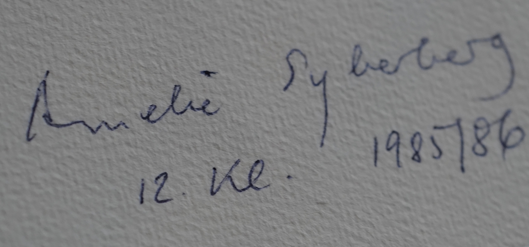 Amelie Syberberg
12. Kl. 1985/86